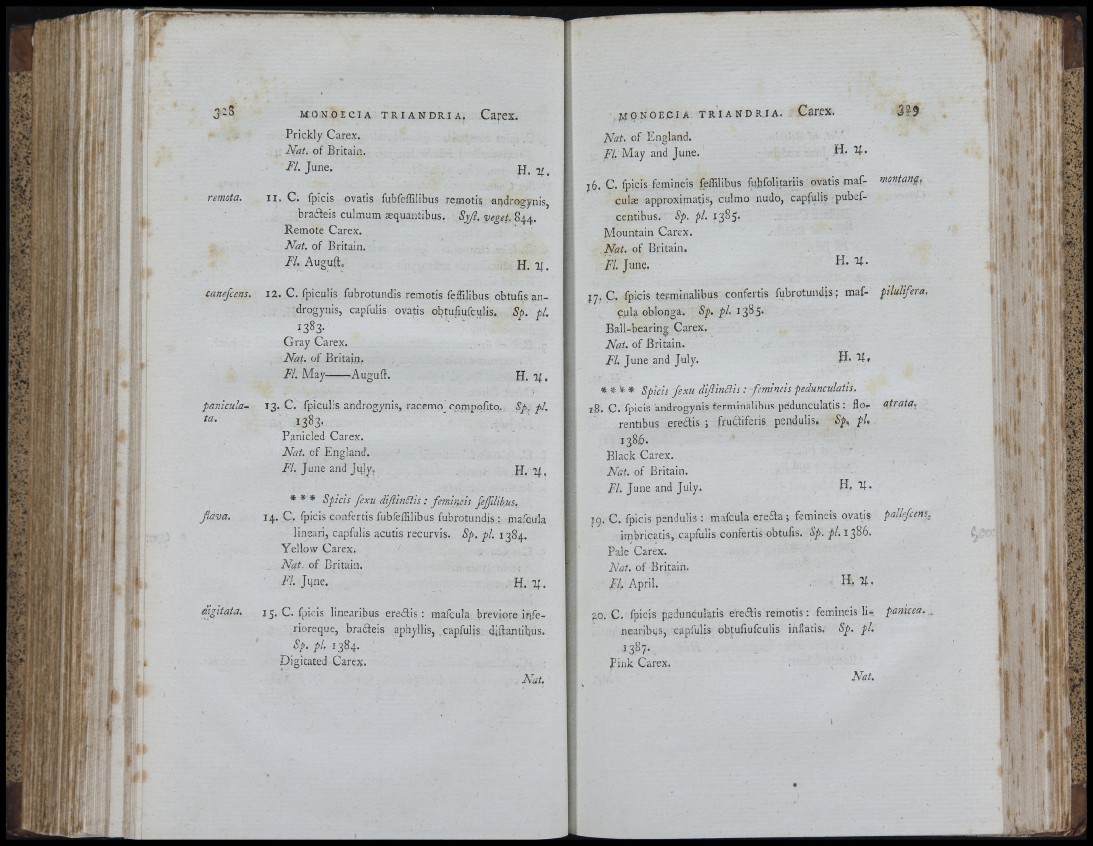 328 MONOECIA TRIANDRIA. Carex.
Prickly Carex.
Nat. of Britain.
Fl. June. H. ♃.
remota. 11. C. ſpicis ovatis ſubſeſſilibus remotis androgynis,
bracteis culmum æquantibus. Syſt. veget. 844.
Remote Carex.
Nat. of Britain.
Fl. Auguſt. H. ♃.
caneſcens. 12. C. ſpiculis ſubrotundis remotis ſeſſilibus obtuſis an-
drogynis, capſulis ovatis obtuſiuſculis. Sp. pl.
1383.
Gray Carex.
Nat. of Britain.
Fl. May——Auguſt. H. ♃.
panicula- 13. C. ſpiculis androgynis, racemo compoſito. Sp. pl.
ta. 1383.
Panicled Carex.
Nat. of England.
Fl. June and July. H. ♃.
*** Spicis ſexu diſtinctis: femineis ſeſſilibus.
flava. 14. C. ſpicis confertis ſubſeſſilibus ſubrotundis: maſcula
lineari, capſulis acutis recurvis. Sp. pl. 1384.
Yellow Carex.
Nat. of Britain.
Fl. June. H. ♃.
digitata. 15. C. ſpicis linearibus erectis: maſcula breviore infe-
rioreque, bracteis aphyllis, capſulis diſtantibus.
Sp. pl. 1384.
Digitated Carex.
Nat.
MONOECIA TRIANDRIA. Carex. 329
Nat. of England.
Fl. May and June. H. ♃.
16. C. ſpicis femineis ſeſſilibus ſubſolitariis ovatis maſ- montana.
culæ approximatis, culmo nudo, capſulis pubeſ-
centibus. Sp. pl. 1385.
Mountain Carex.
Nat. of Britain.
Fl. June. H. ♃.
17. C. ſpicis terminalibus confertis ſubrotundis; maſ- pilulifera.
cula oblonga. Sp. pl. 1385.
Ball-bearing Carex.
Nat. of Britain.
Fl. June and July. H. ♃.
**** Spicis ſexu diſtinctis: femineis pedunculatis.
18. C. ſpicis androgynis terminalibus pedunculatis: flo- atrata.
rentibus erectis; fructiferis pendulis. Sp. pl.
1386.
Black Carex.
Nat. of Britain.
Fl. June and July. H. ♃.
19. C. ſpicis pendulis: maſcula erecta; femineis ovatis palleſcens.
imbricatis, capſulis confertis obtuſis. Sp. pl. 1386.
Pale Carex.
Nat. of Britain.
Fl. April. H. ♃.
20. C. ſpicis pedunculatis erectis remotis: femineis li- panicea.
nearibus, capſulis obtuſiuſculis inflatis. Sp. pl.
1387.
Pink Carex.
Nat.